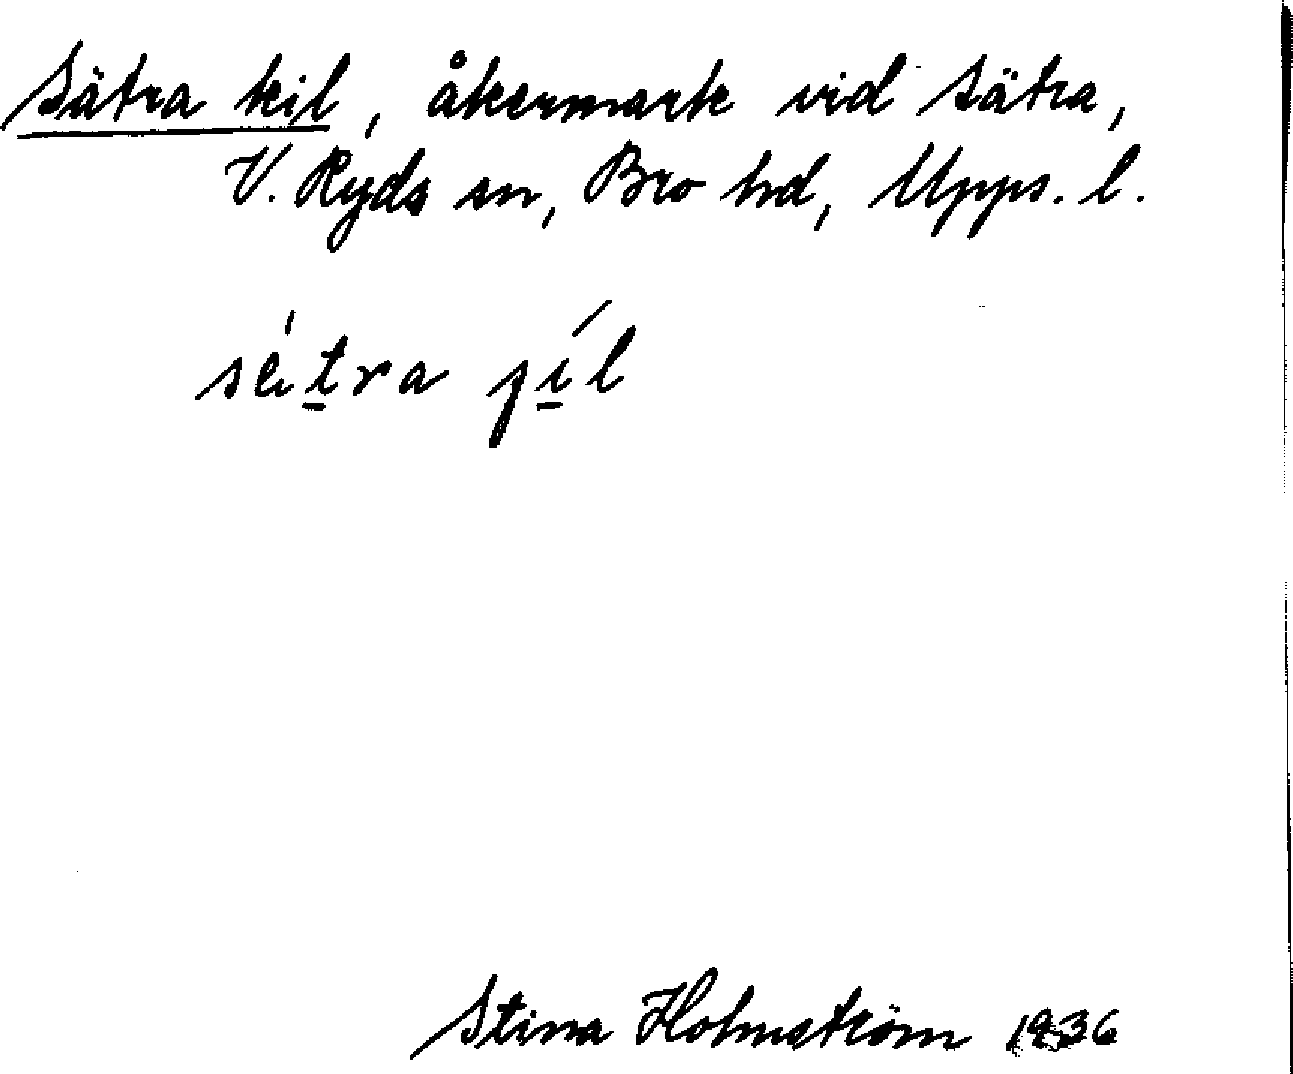 Sätra kil, åkermark vid Sätra,
V. Ryds sn, Bro hd, Upps. l.
Stina Holmström 1936